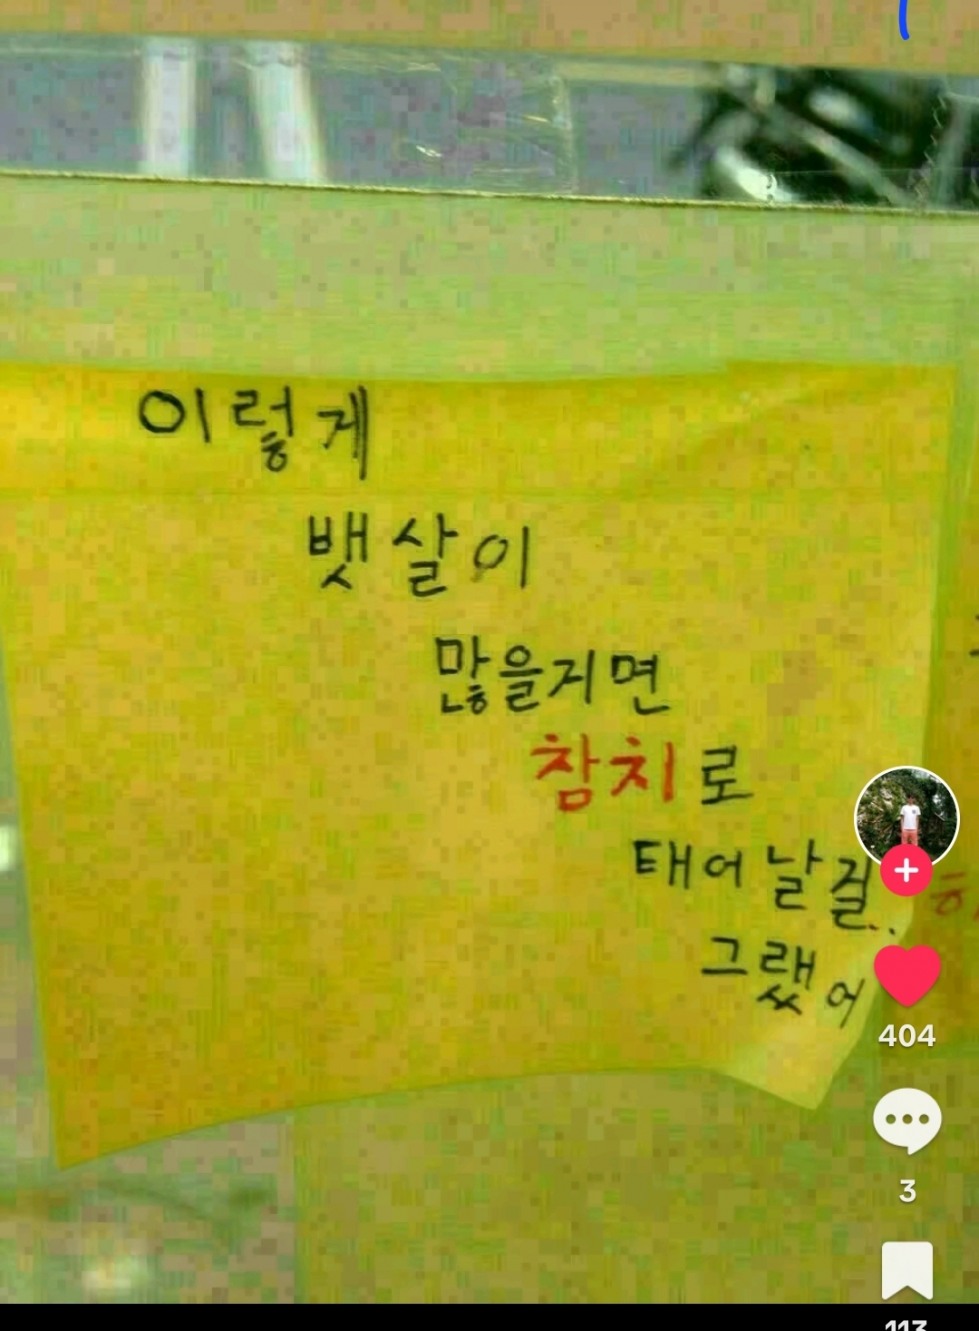 이렇게
뱃살이
많을지면
참치로
태어날걸..
그랬어
404
3
113